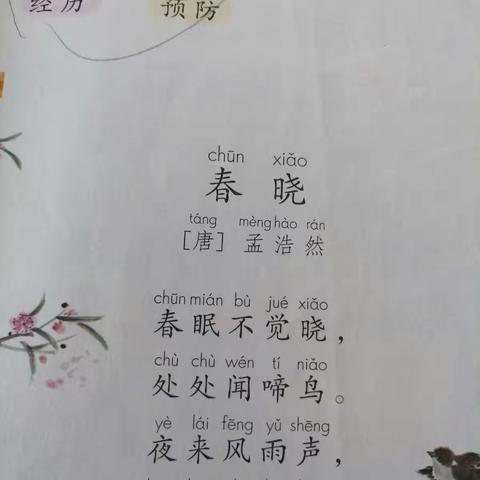 经历 预防
chūn xiǎo
春晓
táng mèng hào rán
[唐] 孟浩然
chūn mián bù jué xiǎo
春眠不觉晓，
chù chù wén tí niǎo
处处闻啼鸟。
yè lái fēng yǔ shēng
夜来风雨声，